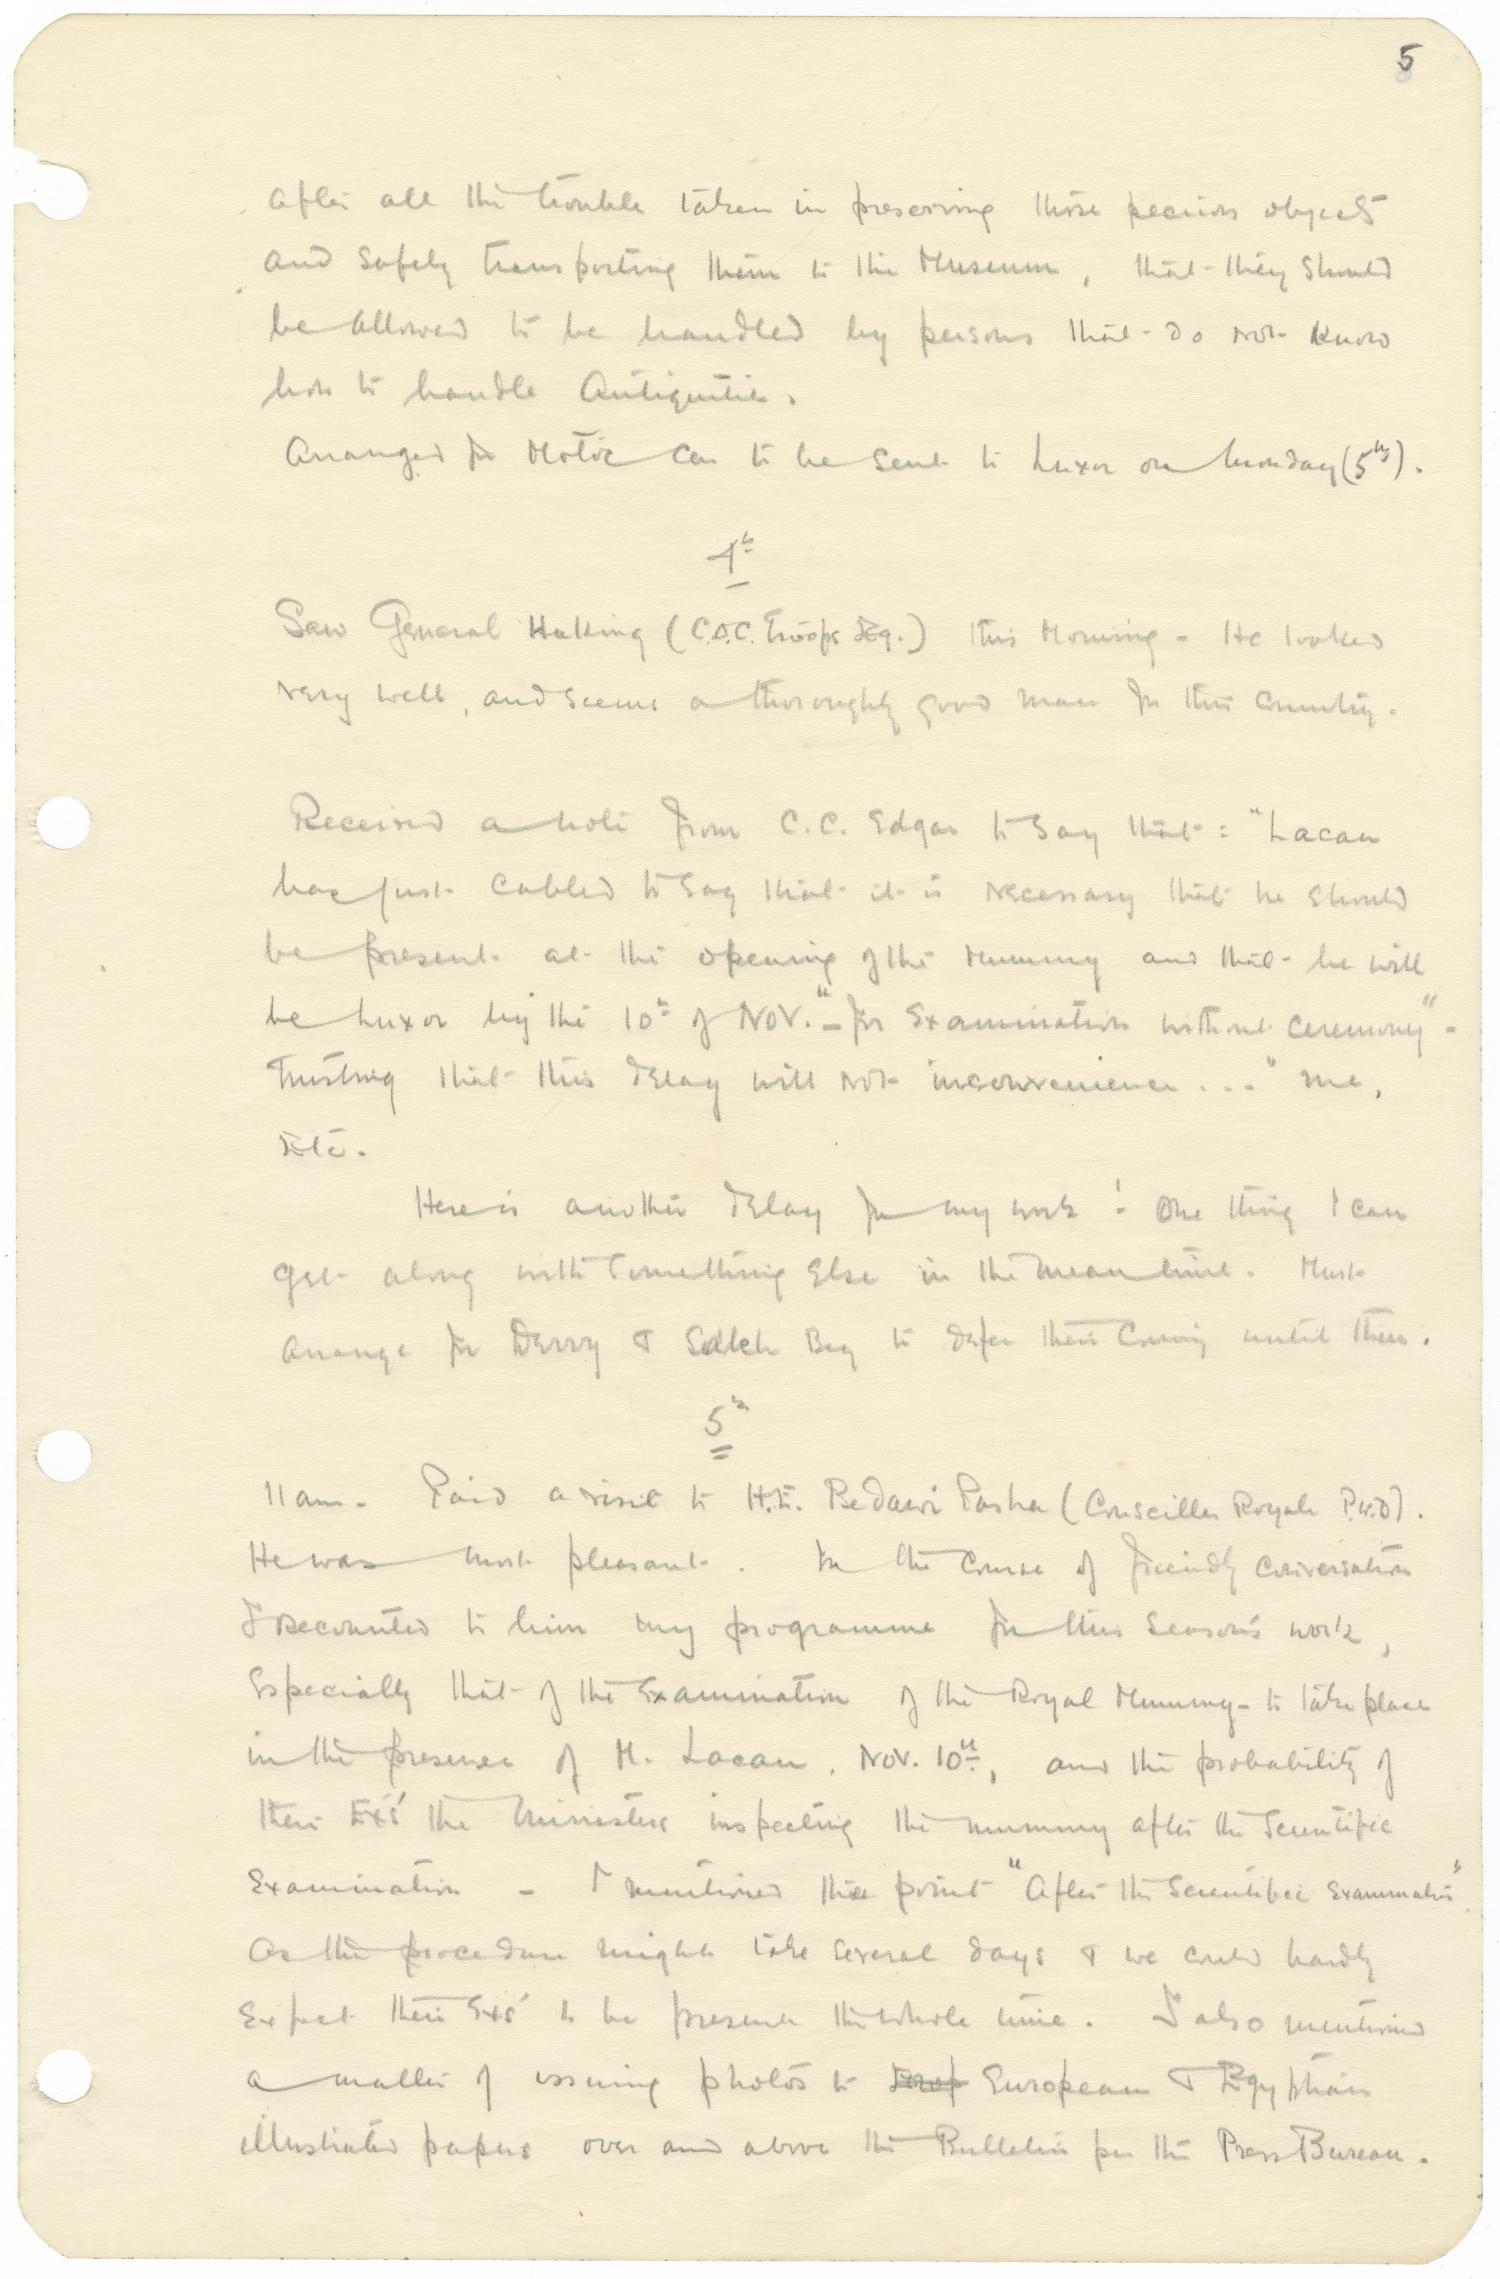 5
after all the trouble taken in preserving those precious objects
and safely transporting them to the Museum, that they should
be allowed to be handled by persons that do not know
how to handle antiquities.
Arranged for Motor Car to be sent to Luxor on Monday (5th).
4th
Saw General Haking (C.O.C. Troops Eg.) this Morning - He looked
very well, and seems a thoroughly good man for this country.
Received a note from C.C. Edgar to say that: "Lacau
has just cabled to say that it is necessary that he should
be present at the opening of the Mummy and that he will
be Luxor by the 10th of Nov." - for Examination without ceremony" -
Trusting that this delay will not inconvenience ..." me,
Etc.
Here is another delay for my work! One thing I can
get along with something else in the meantime. Must
arrange for Derry & Saleh Bey to defer their coming until then.
5th
11 am. Paid a visit to H.E. Bedawi Pasha (Conseiller Royale P.W.D).
He was most pleasant. In the course of friendly conversation
I recounted to him my programme for this season's work,
Especially that of the Examination of the Royal Mummy - to take place
in the presence of M. Lacau, Nov. 10th, and the probability of
their Ex's' the Ministers inspecting the mummy after the scientific
Examination - I mentioned the point "After the Scientific Examination"
as the procedure might take several days & we could hardly
Expect their Exs' to be present the whole time. I also mentioned
a matter of issuing photos to European & Egyptian
illustrated papers over and above the Bulletin per the Press Bureau.